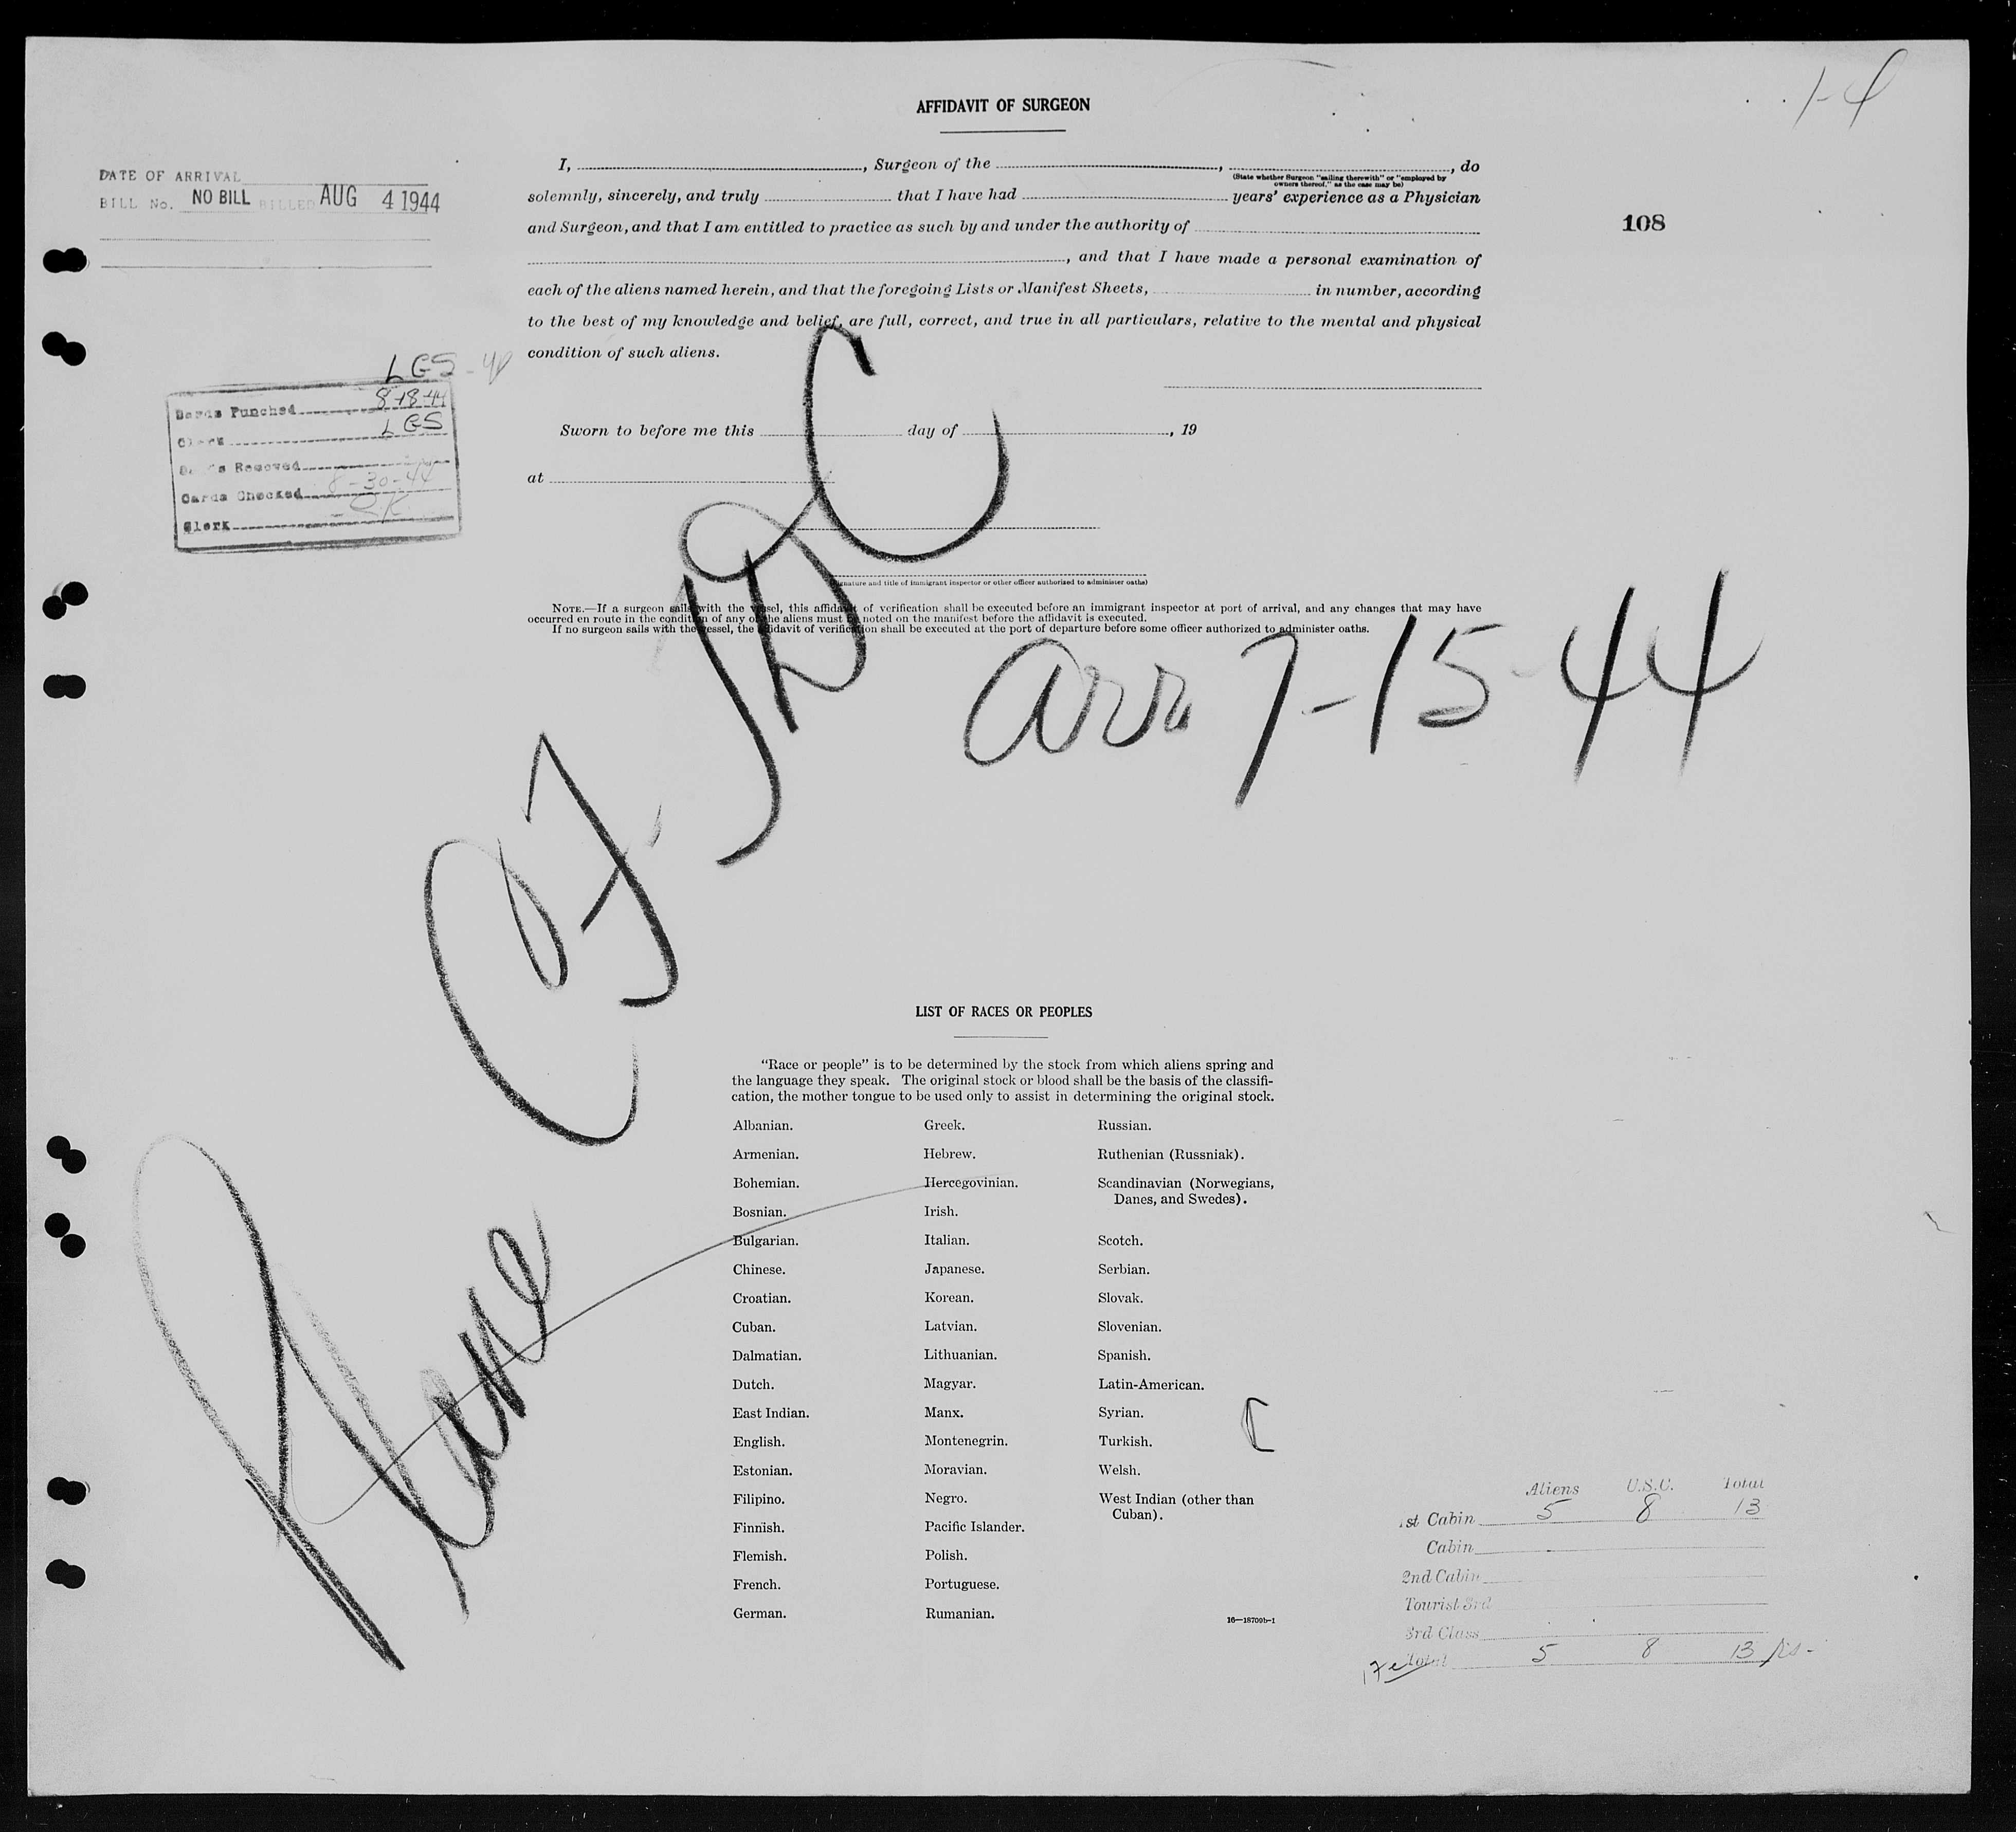 1-4
AFFIDAVIT OF SURGEON
DATE OF ARRIVAL
BILL No. NO BILL BILLED AUG 4 1944
108
I, , Surgeon of the , , do
(State whether Surgeon "sailing therewith" or "employed by owners thereof," as the case may be)
solemnly, sincerely, and truly that I have had years' experience as a Physician
and Surgeon, and that I am entitled to practice as such by and under the authority of
, and that I have made a personal examination of
each of the aliens named herein, and that the foregoing Lists or Manifest Sheets, in number, according
to the best of my knowledge and belief, are full, correct, and true in all particulars, relative to the mental and physical
condition of such aliens.
LGS
Cards Punched 8-18-44
Clerk LGS
Cards Removed
Cards Checked 8-30-44
Clerk
Sworn to before me this day of , 19
at
(Signature and title of immigrant inspector or other officer authorized to administer oaths)
NOTE.—If a surgeon sails with the vessel, this affidavit of verification shall be executed before an immigrant inspector at port of arrival, and any changes that may have
occurred en route in the condition of any of the aliens must be noted on the manifest before the affidavit is executed.
If no surgeon sails with the vessel, the affidavit of verification shall be executed at the port of departure before some officer authorized to administer oaths.
arr. 7-15-44
Plane
LIST OF RACES OR PEOPLES
"Race or people" is to be determined by the stock from which aliens spring and
the language they speak. The original stock or blood shall be the basis of the classifi-
cation, the mother tongue to be used only to assist in determining the original stock.
Albanian.
Armenian.
Bohemian.
Bosnian.
Bulgarian.
Chinese.
Croatian.
Cuban.
Dalmatian.
Dutch.
East Indian.
English.
Estonian.
Filipino.
Finnish.
Flemish.
French.
German.
Greek.
Hebrew.
Hercegovinian.
Irish.
Italian.
Japanese.
Korean.
Latvian.
Lithuanian.
Magyar.
Manx.
Montenegrin.
Moravian.
Negro.
Pacific Islander.
Polish.
Portuguese.
Rumanian.
Russian.
Ruthenian (Russniak).
Scandinavian (Norwegians,
Danes, and Swedes).
Scotch.
Serbian.
Slovak.
Slovenian.
Spanish.
Latin-American.
Syrian.
Turkish.
Welsh.
West Indian (other than
Cuban).
16—18709b-1
Aliens U.S.C. Total
1st Cabin 5 8 13
Cabin
2nd Cabin
Tourist 3rd
3rd Class
Total 5 8 13